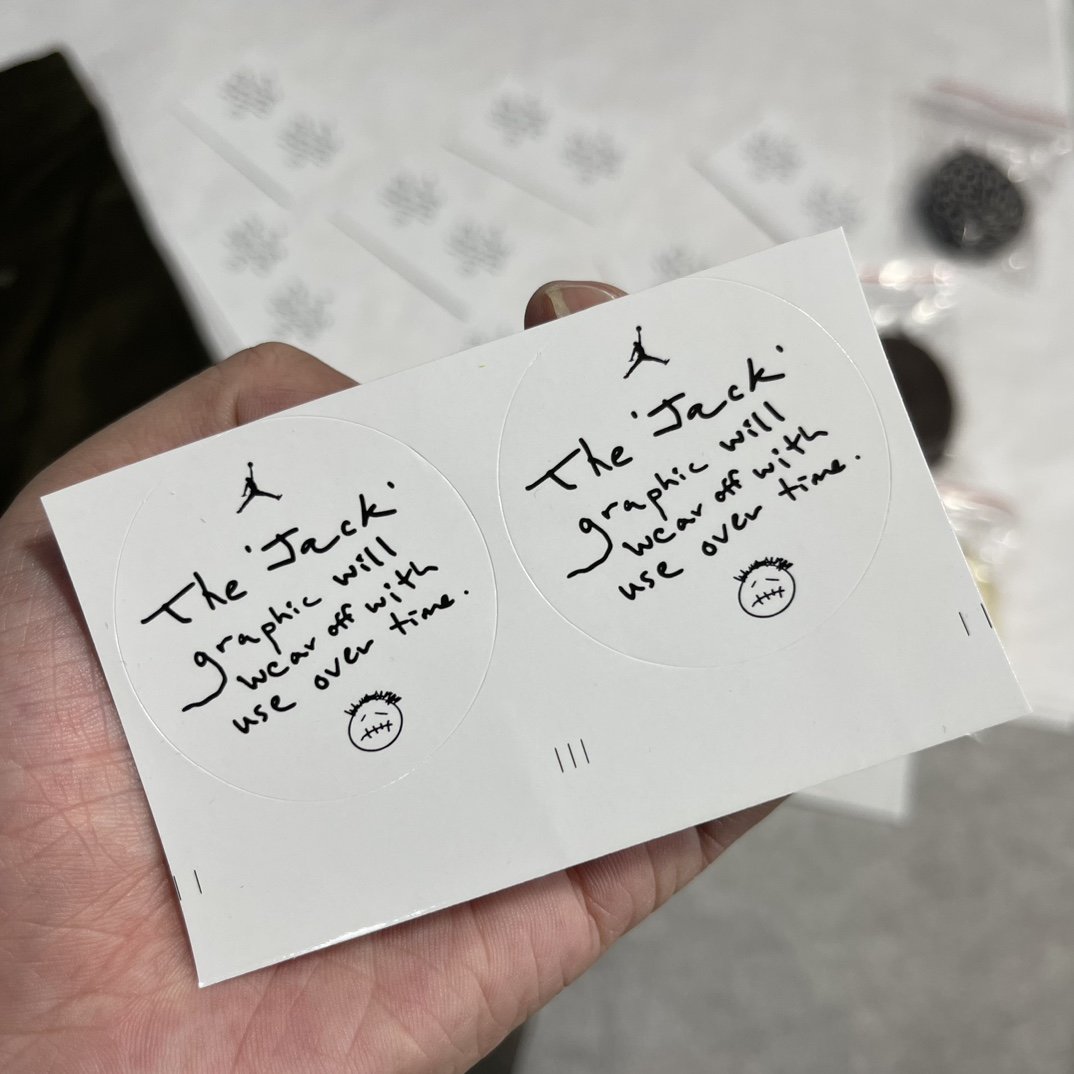 The 'Jack'
graphic will
wear off with
use over time.
The 'Jack'
graphic will
wear off with
use over time.